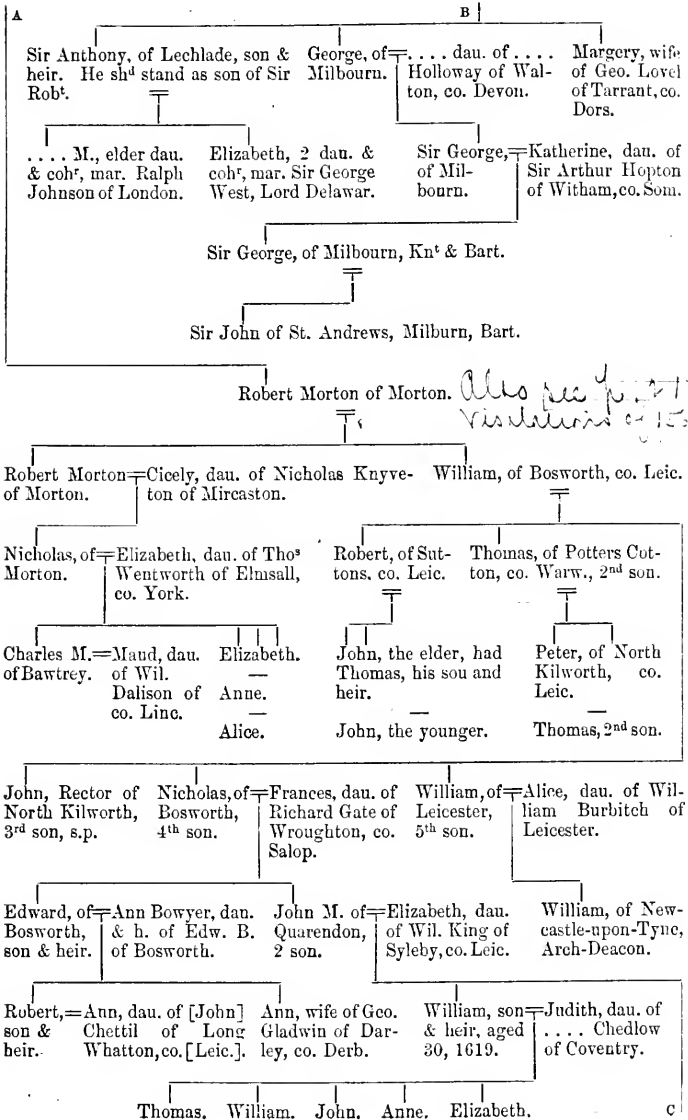 A
B
Sir Anthony, of Lechlade, son &
heir. He shᵈ stand as son of Sir
Robᵗ.
George, of
Milbourn.
. . . . dau. of . . . .
Holloway of Wal-
ton, co. Devon.
Margery, wife
of Geo. Lovel
of Tarrant, co.
Dors.
. . . . M., elder dau.
& cohʳ, mar. Ralph
Johnson of London.
Elizabeth, 2 dau. &
cohʳ, mar. Sir George
West, Lord Delawar.
Sir George,
of Mil-
bourn.
Katherine, dau. of
Sir Arthur Hopton
of Witham, co. Som.
Sir George, of Milbourn, Knᵗ & Bart.
Sir John of St. Andrews, Milburn, Bart.
Robert Morton of Morton.
Also see p.
Visitations of 15
Robert Morton
of Morton.
Cicely, dau. of Nicholas Knyve-
ton of Mircaston.
William, of Bosworth, co. Leic.
Nicholas, of
Morton.
Elizabeth, dau. of Thoˢ
Wentworth of Elmsall,
co. York.
Robert, of Sut-
tons, co. Leic.
Thomas, of Potters Cot-
ton, co. Warw., 2ⁿᵈ son.
Charles M.
of Bawtrey.
Maud, dau.
of Wil.
Dalison of
co. Linc.
Elizabeth.
—
Anne.
—
Alice.
John, the elder, had
Thomas, his sou and
heir.
—
John, the younger.
Peter, of North
Kilworth, co.
Leic.
—
Thomas, 2ⁿᵈ son.
John, Rector of
North Kilworth,
3ʳᵈ son, s.p.
Nicholas, of
Bosworth,
4ᵗʰ son.
Frances, dau. of
Richard Gate of
Wroughton, co.
Salop.
William, of
Leicester,
5ᵗʰ son.
Alice, dau. of Wil-
liam Burbitch of
Leicester.
Edward, of
Bosworth,
son & heir.
Ann Bowyer, dau.
& h. of Edw. B.
of Bosworth.
John M. of
Quarendon,
2 son.
Elizabeth, dau.
of Wil. King of
Syleby, co. Leic.
William, of New-
castle-upon-Tyne,
Arch-Deacon.
Robert,
son &
heir.
Ann, dau. of [John]
Chettil of Long
Whatton, co. [Leic.].
Ann, wife of Geo.
Gladwin of Dar-
ley, co. Derb.
William, son
& heir, aged
30, 1619.
Judith, dau. of
. . . . Chedlow
of Coventry.
Thomas. William. John. Anne. Elizabeth.
C